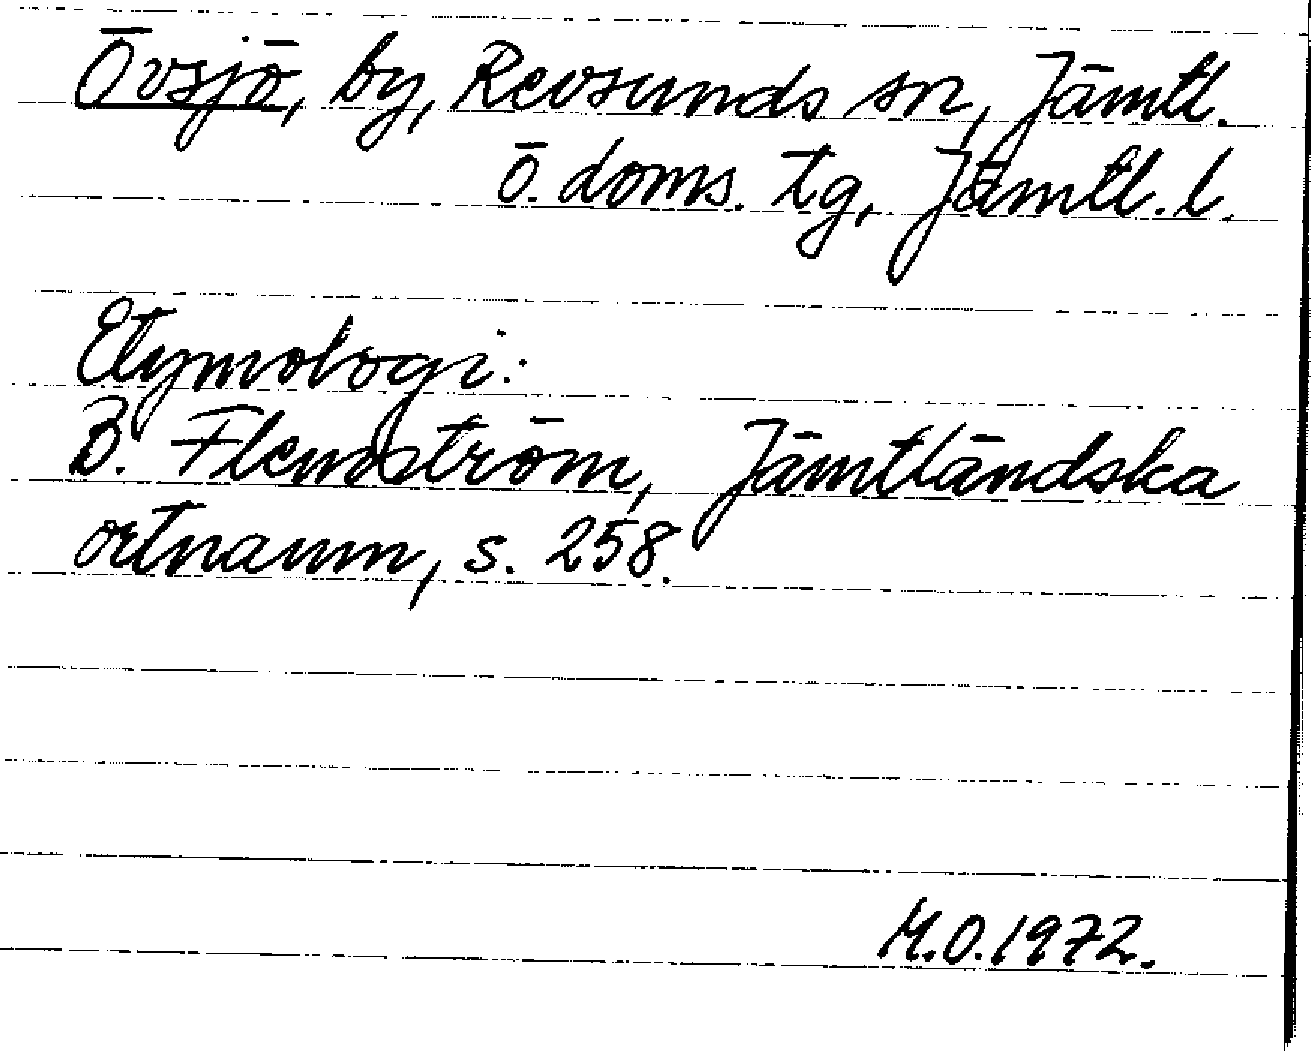 Övsjö, by, Revsunds sn, Jämtl.
ö. doms. tg, Jämtl. l.
Etymologi:
B. Flemström, Jämtländska
ortnamn, s. 258.
M.O. 1972.